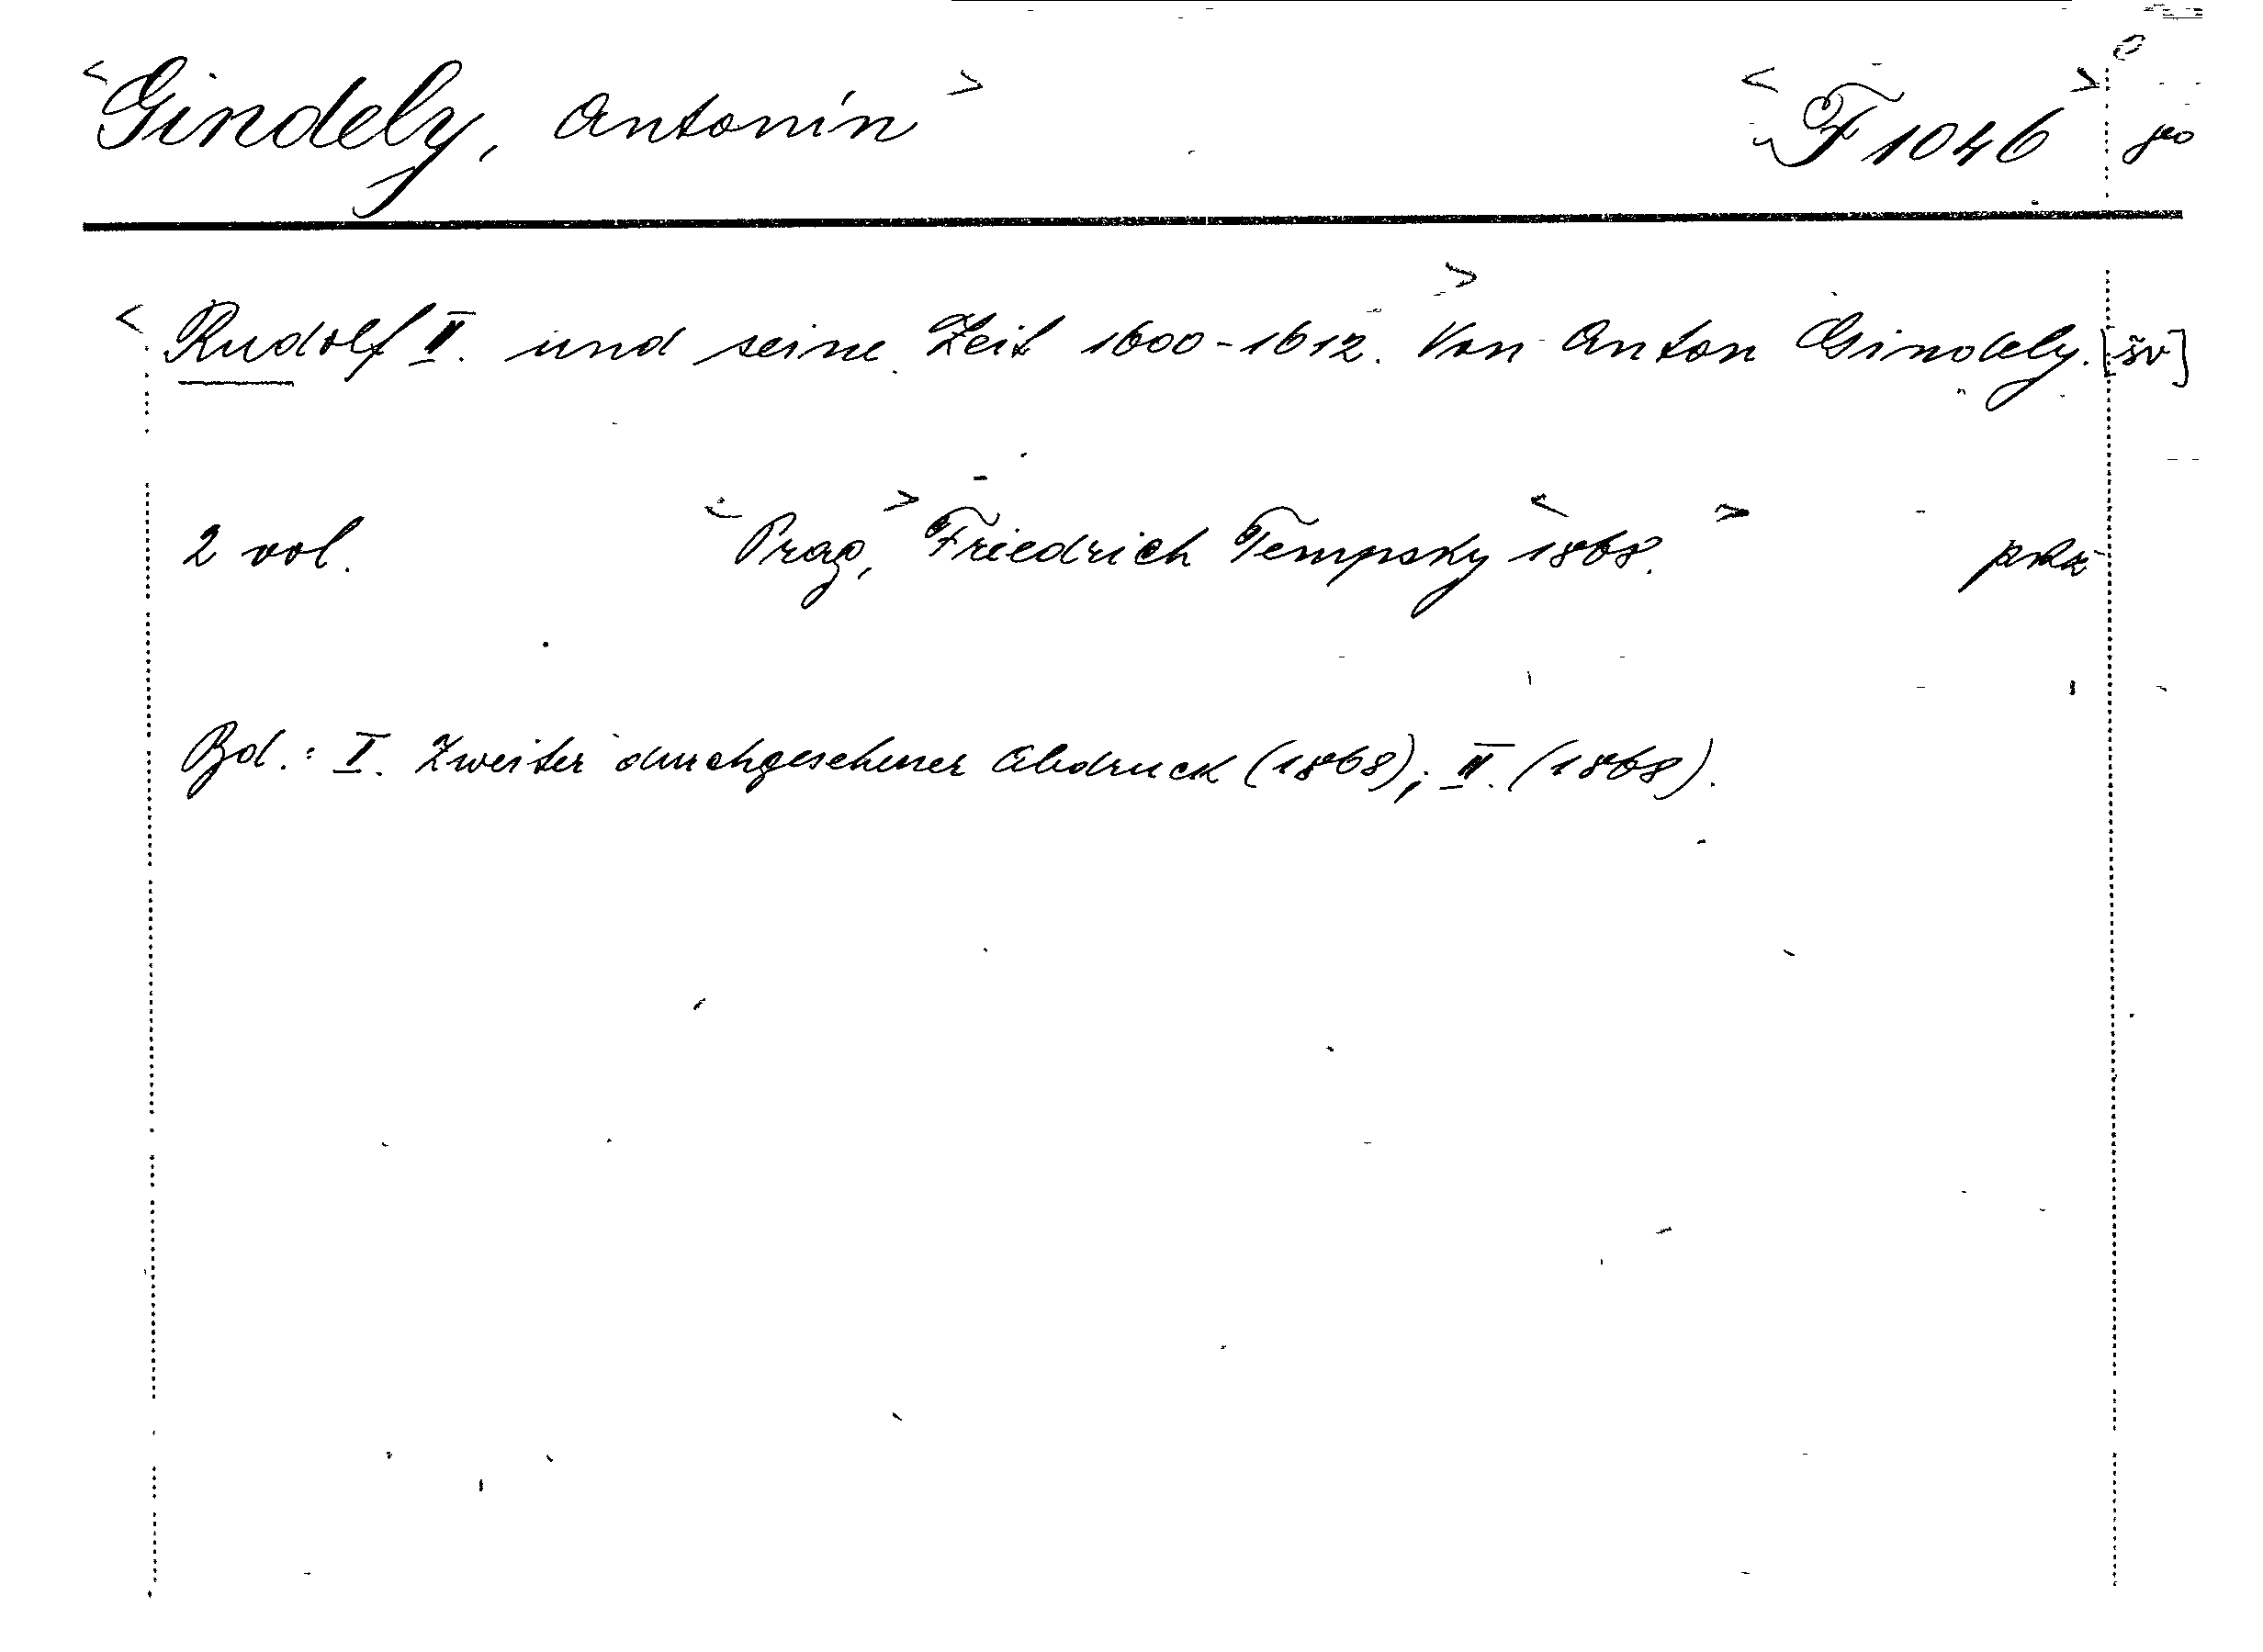 <Gindely, Antonín> <F 1046>
<Rudolf II. und seine Zeit 1600-1612.> Von Anton Gindely. [šv]
2 vol. <Prag,> Friedrich Tempsky <1868.>
Bd.: I. Zweiter durchgesehener Abdruck (1868); II. (1868).